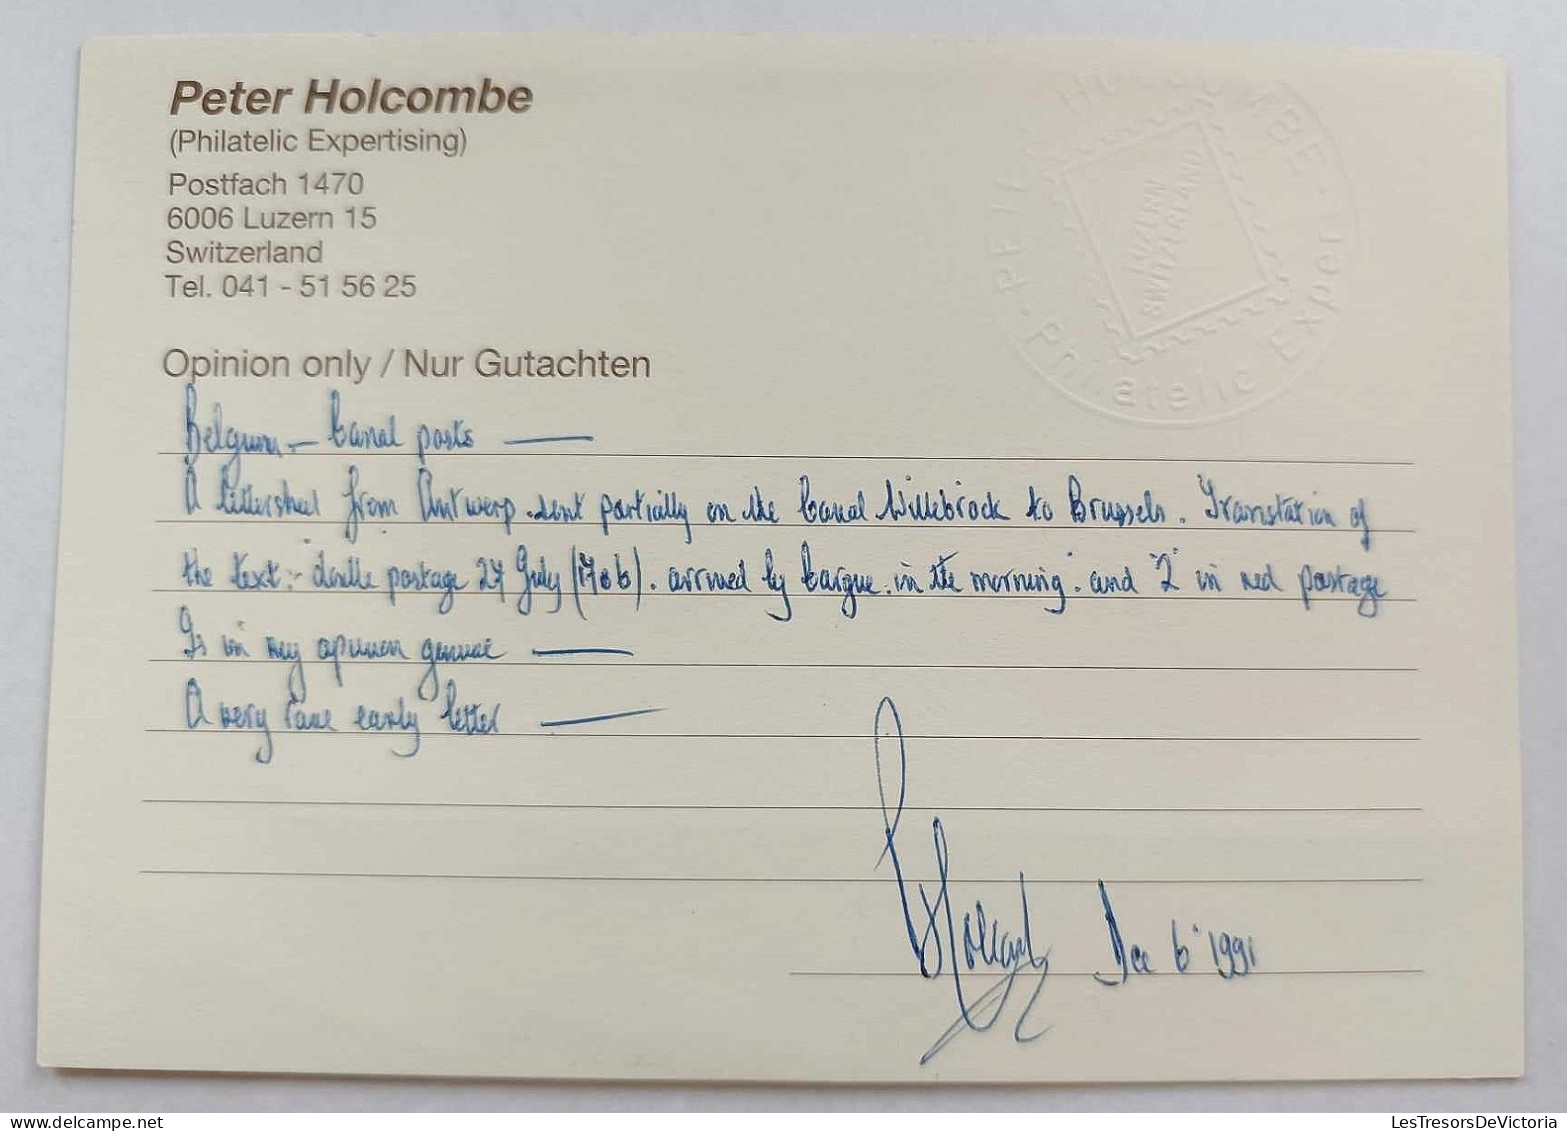 Peter Holcombe
(Philatelic Expertising)
Postfach 1470
6006 Luzern 15
Switzerland
Tel. 041 - 51 56 25
PETER HOLCOMBE · Philatelic Expert ·
LUZERN
SWITZERLAND
Opinion only / Nur Gutachten
Belgium - Canal posts —
A lettersheet from Antwerp sent partially on the Canal Willebrock to Brussels. Translation of
the text:- "double postage 27 July (1706). arrived by bargue in the morning" and "2" in red postage
Is in my opinion genuine —
A very rare early letter —
Dec 6' 1991
LesTresorsDeVictoria